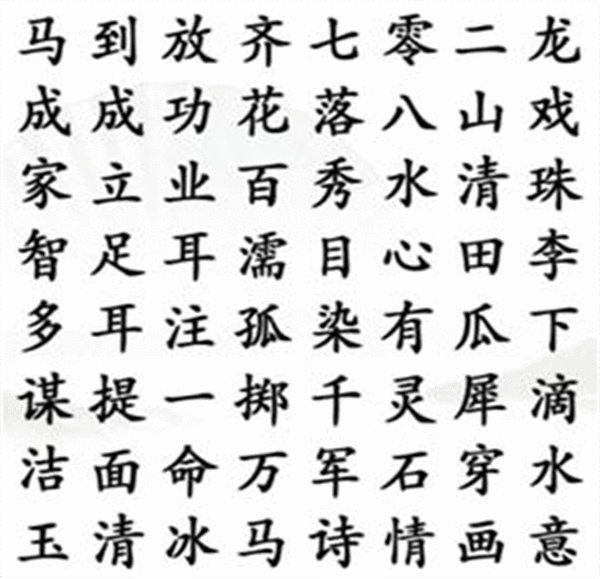 马到放齐七零二龙
成成功花落八山戏
家立业百秀水清珠
智足耳濡目心田李
多耳注孤染有瓜下
谋提一掷千灵犀滴
洁面命万军石穿水
玉清冰马诗情画意